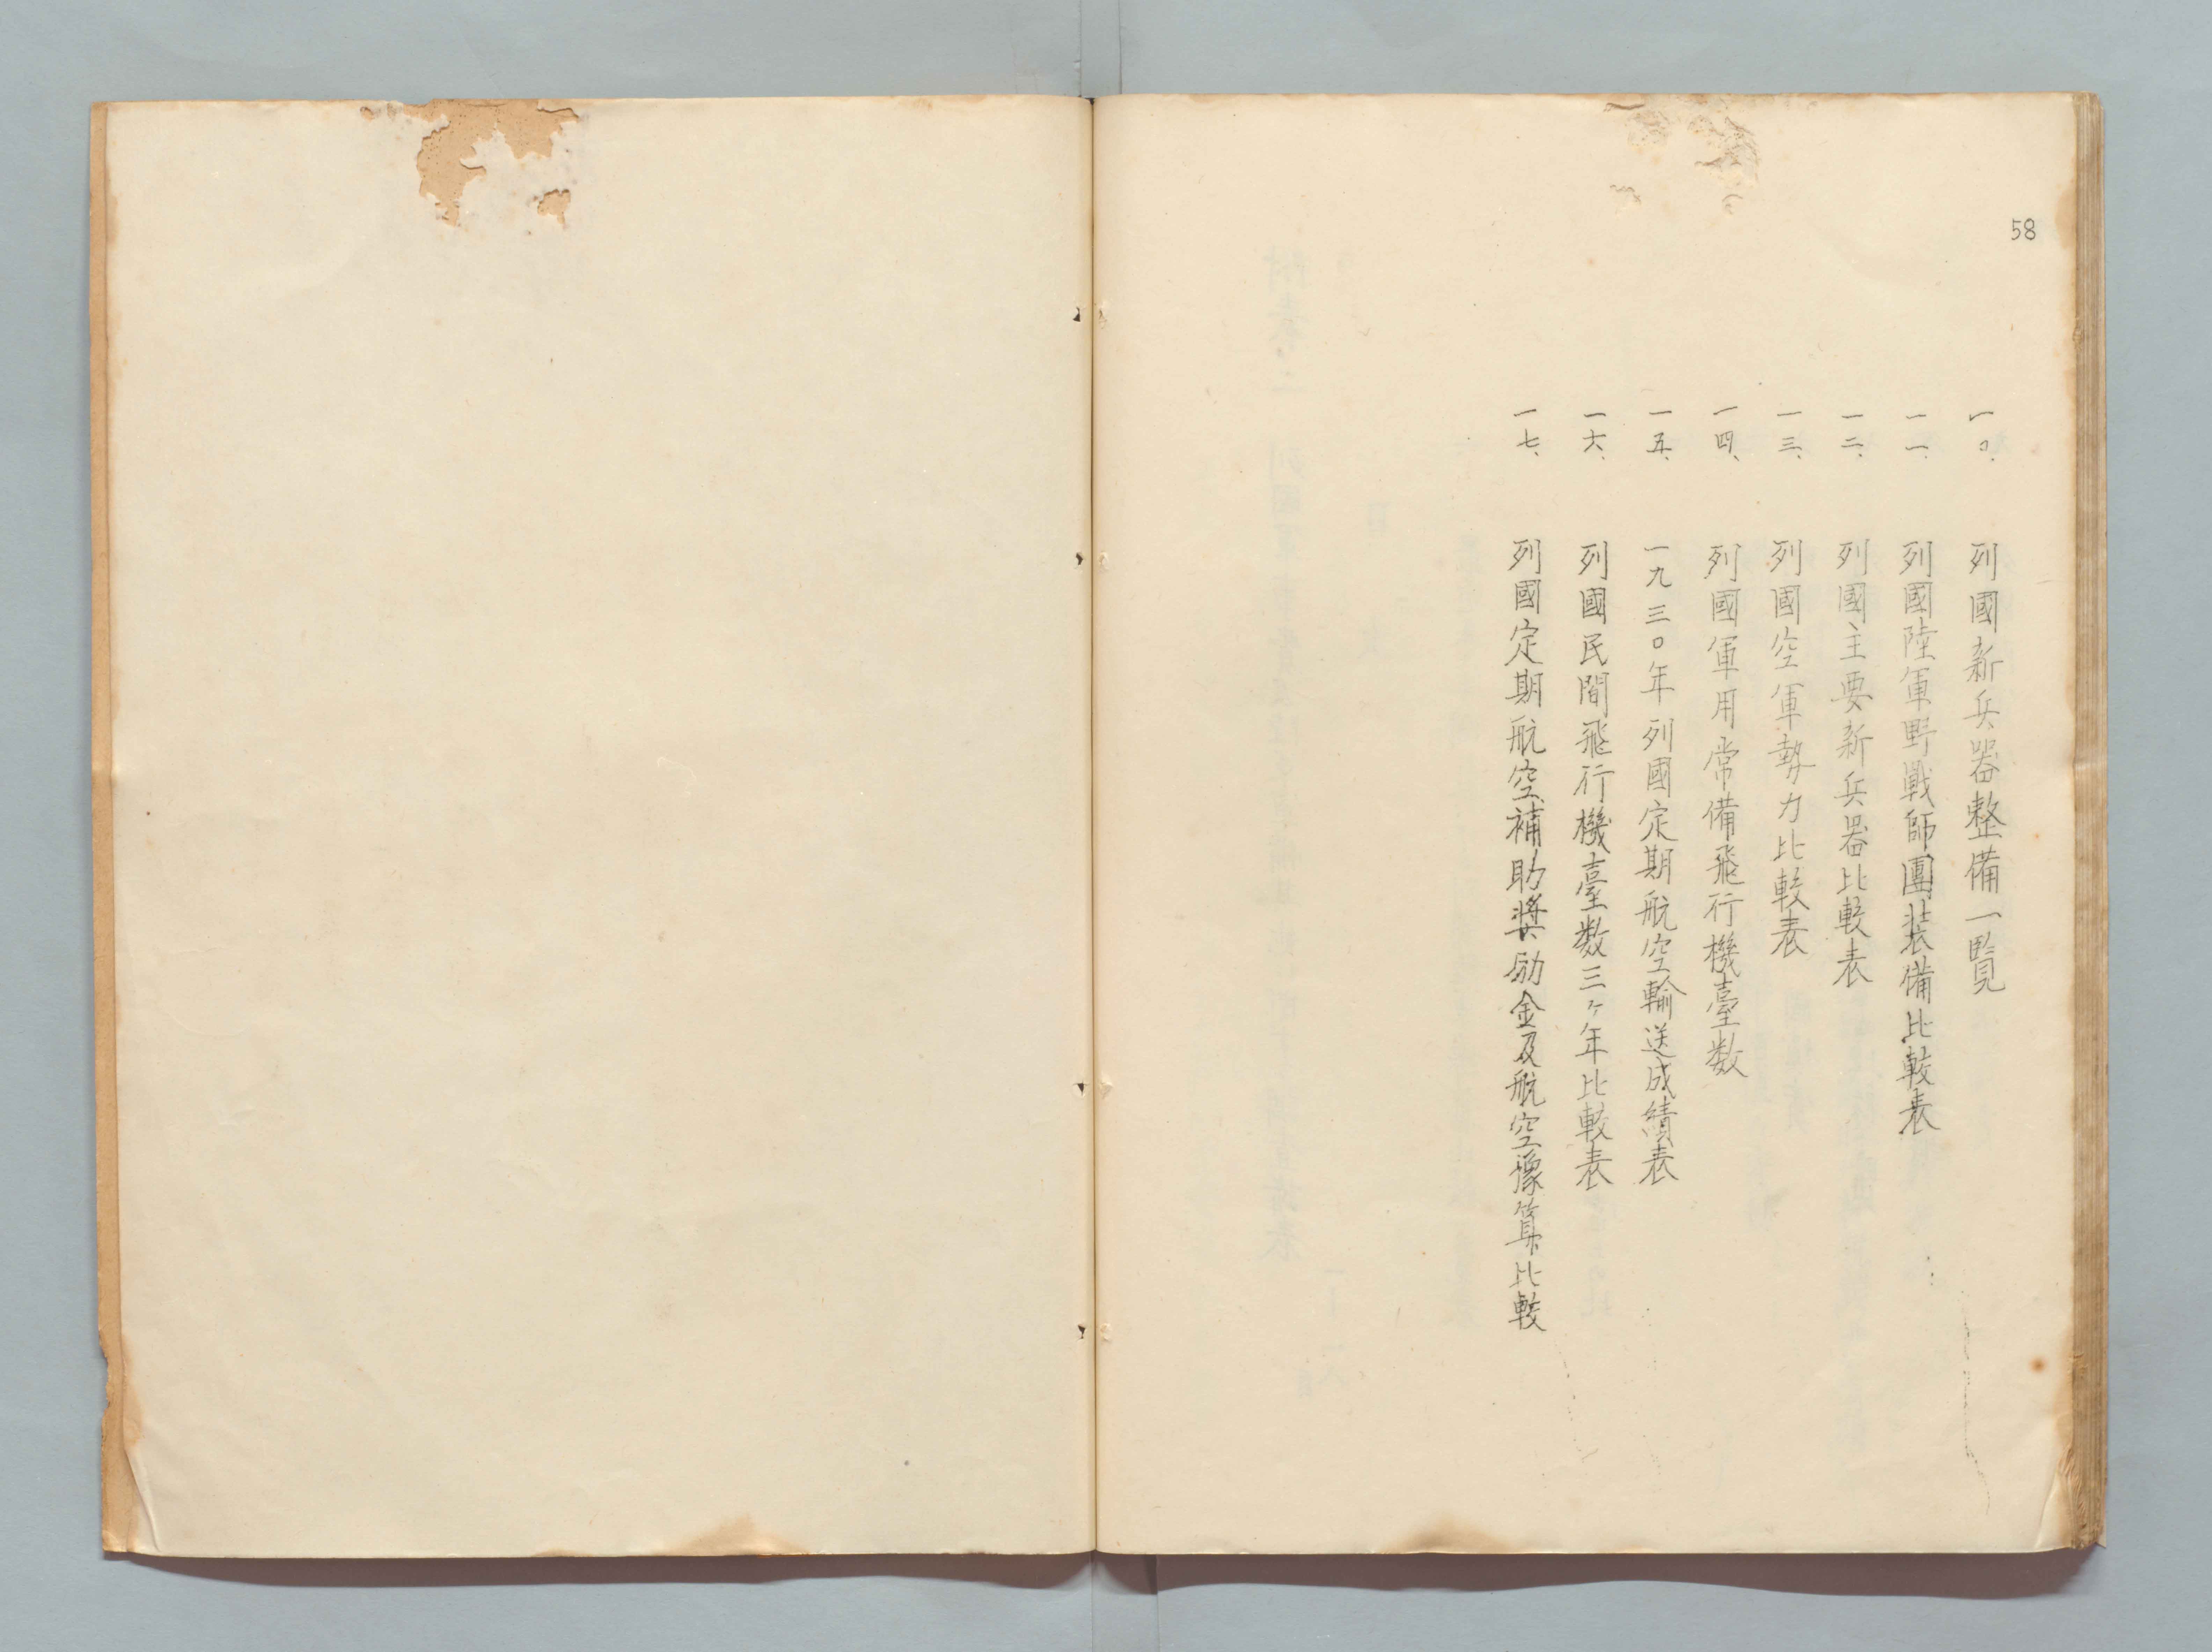 58
一〇、列國新兵器整備一覧
一一、列國陸軍野戰師團装備比較表
一二、列國主要新兵器比較表
一三、列國空軍勢力比較表
一四、列國軍用常備飛行機臺数
一五、一九三〇年列國定期航空輸送成績表
一六、列國民間飛行機臺数三ヶ年比較表
一七、列國定期航空補助奬励金及航空豫算比較